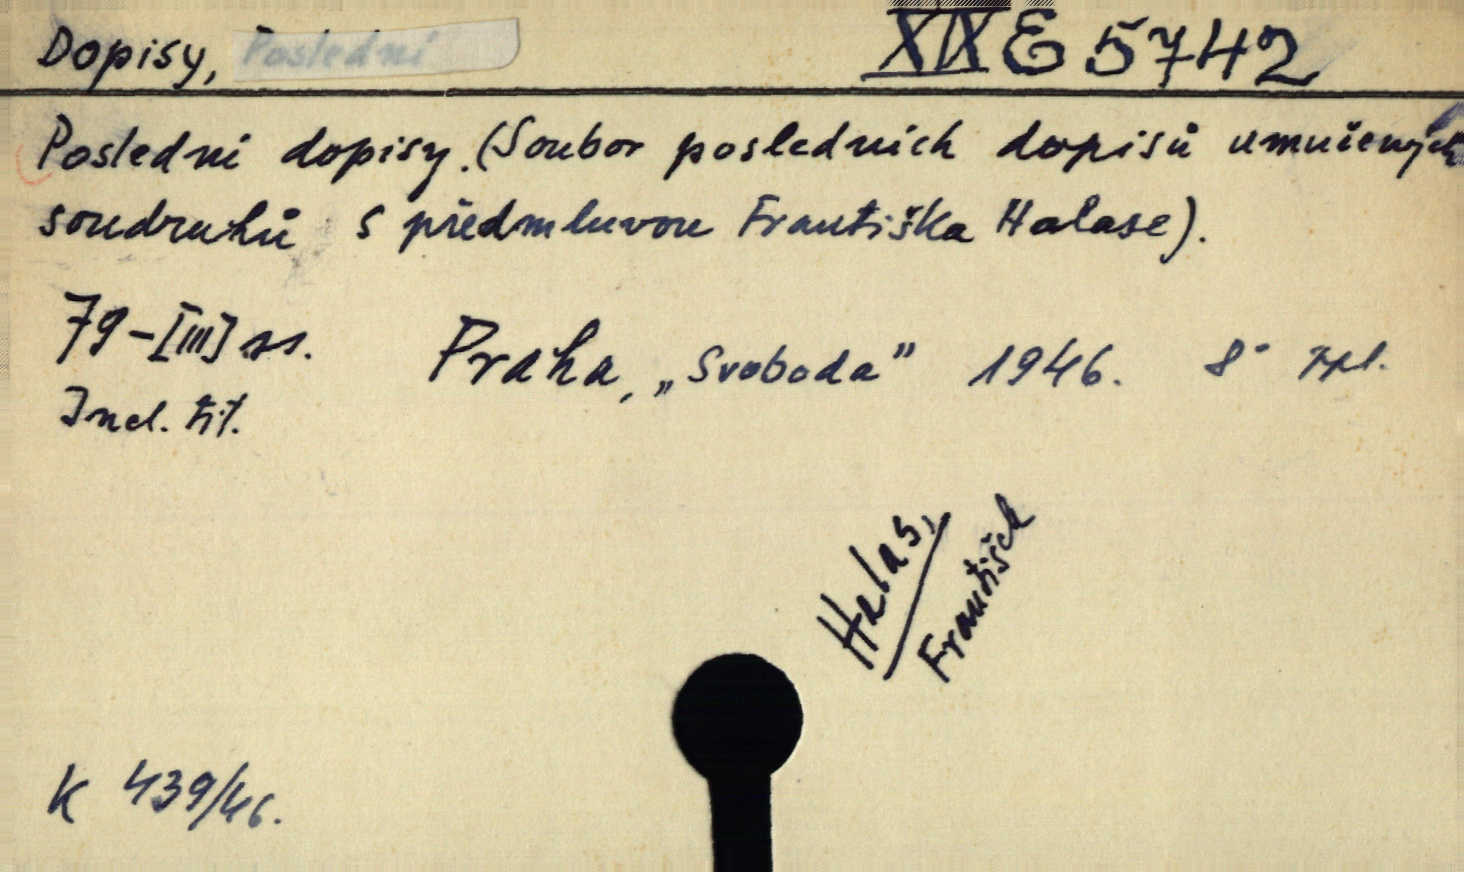 Dopisy, Poslední
XIX E 5742
Poslední dopisy. (Soubor posledních dopisů umučených
soudruhů s předmluvou Františka Halase).
79-[III] ss.
Praha, „Svoboda" 1946. 8°
Incl. tit.
Halas,
František
K 439/46.